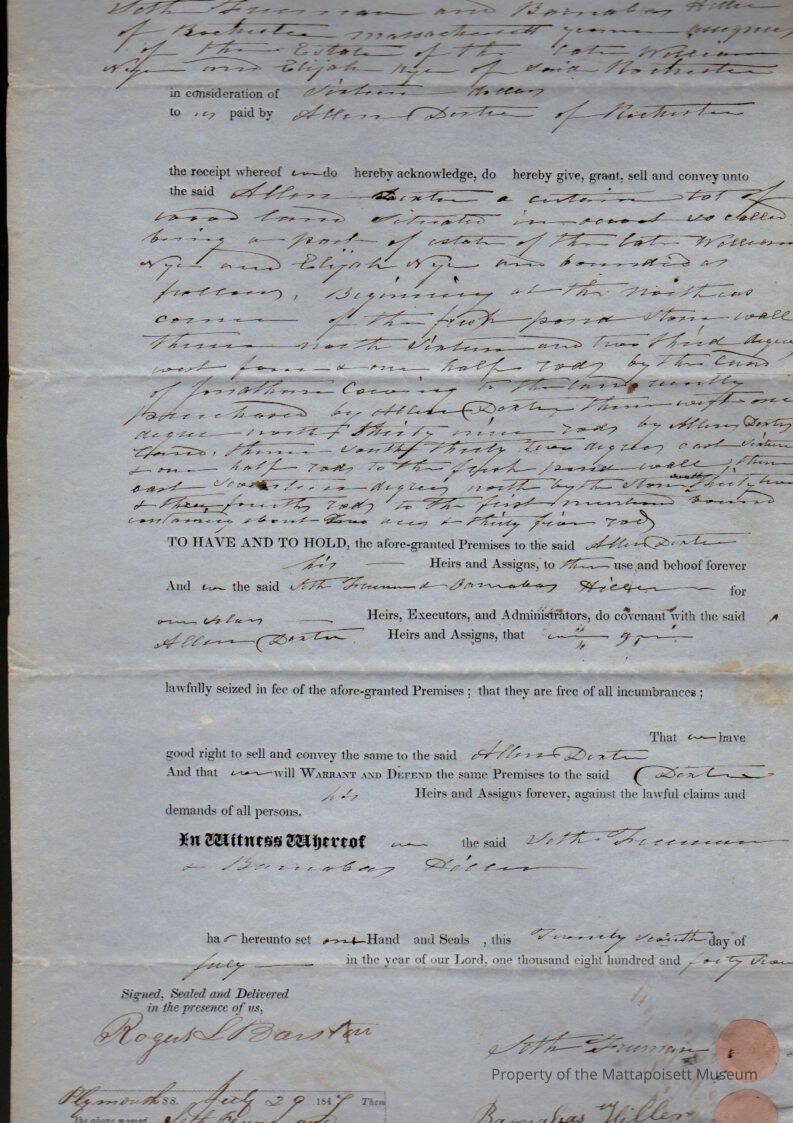 Seth Freeman and Barnabas Hiller
of Rochester Massachusetts
of the Estate of the late William
Nye and Elijah Nye of said Rochester
in consideration of Sixteen dollars
to us paid by Allen Dexter of Rochester
the receipt whereof we do hereby acknowledge, do hereby give, grant, sell and convey unto
the said Allen Dexter a certain lot of
wood land situated in so called
being a part of estate of the late William
Nye and Elijah Nye and bounded as
follows, Beginning at the north
corner of the fresh pond stone wall
thence north sixteen and two third degrees
west four & one half rods by the land
of Jonathan Cowing to the land recently
purchased by Allen Dexter thence west one
degree north thirty nine rods by Allen Dexter
land, thence south thirty two degrees east sixteen
& one half rods to the fresh pond wall, thence
east seventeen degrees north by the stone wall thirty two
& three fourths rods to the first mentioned bound
containing about two acres & thirty five rods
TO HAVE AND TO HOLD, the afore-granted Premises to the said Allen Dexter
his Heirs and Assigns, to their use and behoof forever
And we the said Seth Freeman & Barnabas Hiller for
our selves Heirs, Executors, and Administrators, do covenant with the said
Allen Dexter Heirs and Assigns, that we
lawfully seized in fee of the afore-granted Premises; that they are free of all incumbrances;
That we have
good right to sell and convey the same to the said Allen Dexter
And that we will WARRANT AND DEFEND the same Premises to the said Dexter
his Heirs and Assigns forever, against the lawful claims and
demands of all persons.
In Witness Whereof we the said Seth Freeman
& Barnabas Hiller
ha hereunto set our Hand and Seals, this Twenty seventh day of
July in the year of our Lord, one thousand eight hundred and forty seven
Signed, Sealed and Delivered
in the presence of us,
Rogers L Barstow
Seth Freeman
Property of the Mattapoisett Museum
Plymouth SS. July 29 1847 Then
the above named Seth Freeman
Barnabas Hiller